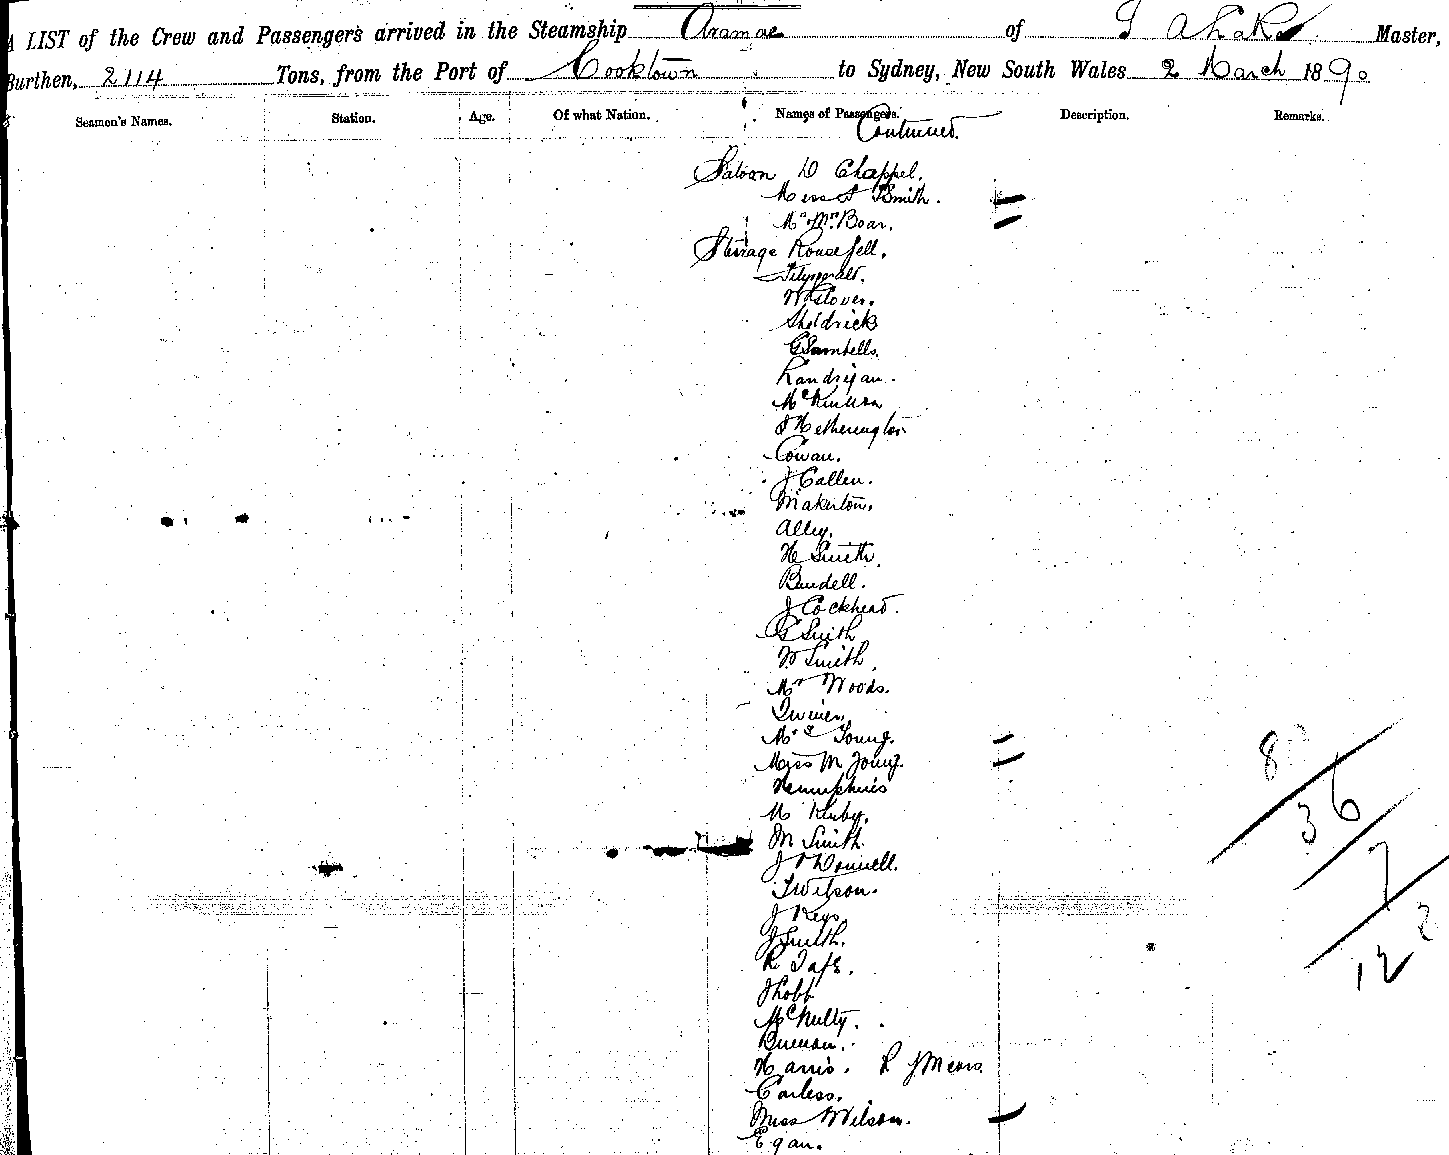 A LIST of the Crew and Passengers arrived in the Steamship Aramac of Master,
Burthen, 2114 Tons, from the Port of Cooktown to Sydney, New South Wales 2 March 1890
Seamen's Names. Station. Age. Of what Nation. Names of Passengers. Description. Remarks.
Continued.
Saloon D Chappel.
Miss A Smith.
Mr Boar.
Steerage Rousefell.
Fitzgerald.
W Glover.
Sheldrick
G Sambells.
Landrigan.
McKinnon
J Hetherington
Cowan.
J Callen.
Makerton.
Alley.
H Smith.
Bundell.
J Cockhead.
G Smith
W Smith.
Mr Woods.
Dwiner.
Mrs Young.
Miss M Young.
Humphries
M Kirby.
M Smith.
J O'Donnell.
T Wilson.
J Keys.
J Smith.
R Taft.
J Lobb
McNulty.
Brennan.
Harris. R J Mears
Carless.
Miss Wilson.
Egan.
8
36
7
12 2